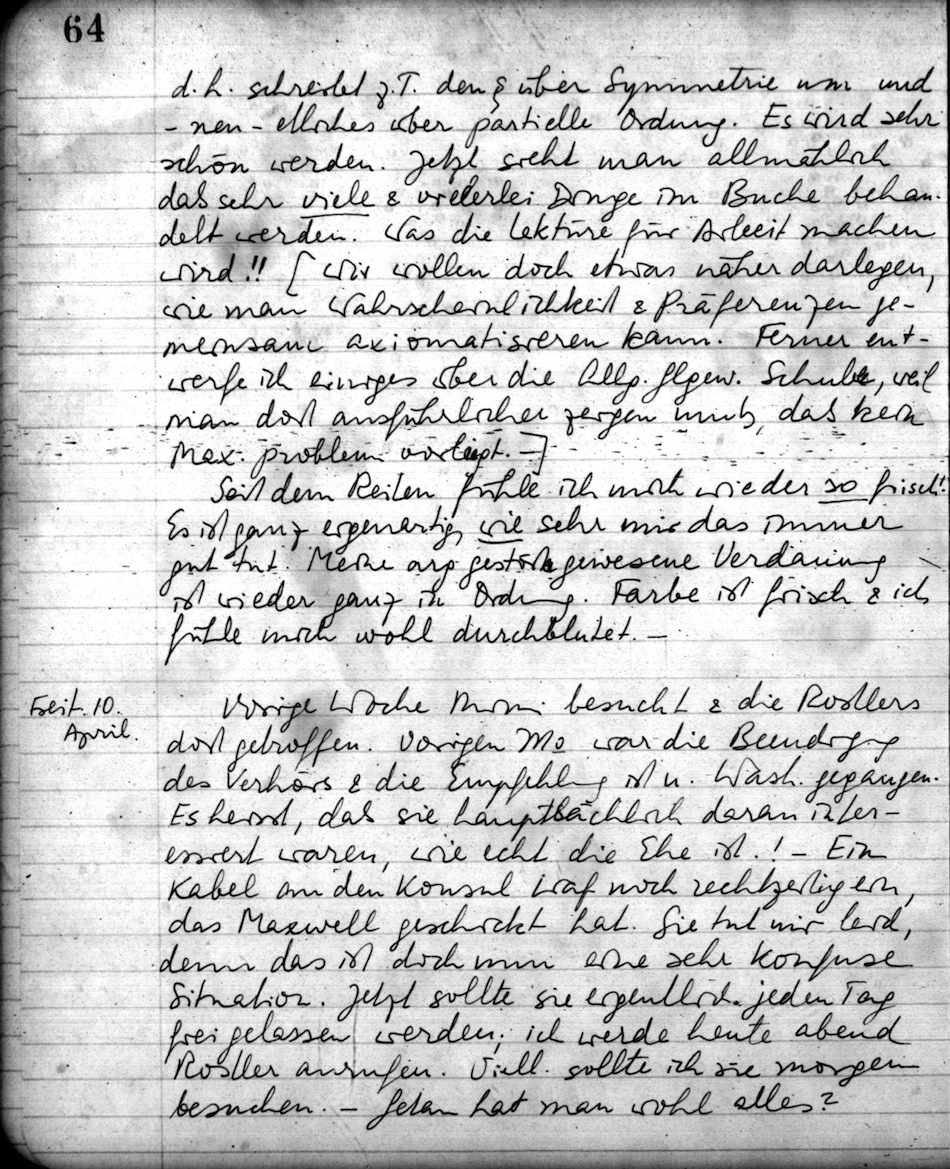 64
d. h. schreibt z. T. den § über Symmetrie um und
- neu - etliches über partielle Ordnung. Es wird sehr
schön werden. Jetzt sieht man allmählich
das sehr viele & vielerlei Dinge im Buche behan-
delt werden. Was die Lektüre für Arbeit machen
wird!! [ Wir wollen doch etwas näher darlegen,
wie man Wahrscheinlichkeit & Präferenzen ge-
meinsam axiomatisieren kann. Ferner ent-
werfe ich einiges über die Allg. Glgew. Schule, weil
man dort ausführlicher zeigen muß, das kein
Max. problem vorliegt. – ]
Seit dem Reiten fühle ich mich wieder so frisch!
Es ist ganz eigenartig, wie sehr mir das immer
gut tut. Meine arg gestörte gewesene Verdauung
ist wieder ganz in Ordnung. Farbe ist frisch & ich
fühle mich wohl durchblutet. –
Freit. 10.
April.
Vorige Woche Mimi besucht & die Rosllers
dort getroffen. Vorigen Mo war die Beendigung
des Verhörs & die Empfehlung ist n. Wash. gegangen.
Es heisst, das sie hauptsächlich daran inter-
essiert waren, wie echt die Ehe ist.! – Ein
Kabel an den Konsul traf noch rechtzeitig ein,
das Maxwell geschickt hat. Sie tut mir leid,
denn das ist doch nun eine sehr konfuse
Situation. Jetzt sollte sie eigentlich jeden Tag
frei gelassen werden; ich werde heute abend
Rosller anrufen. Viell. sollte ich sie morgen
besuchen. – Getan hat man wohl alles?